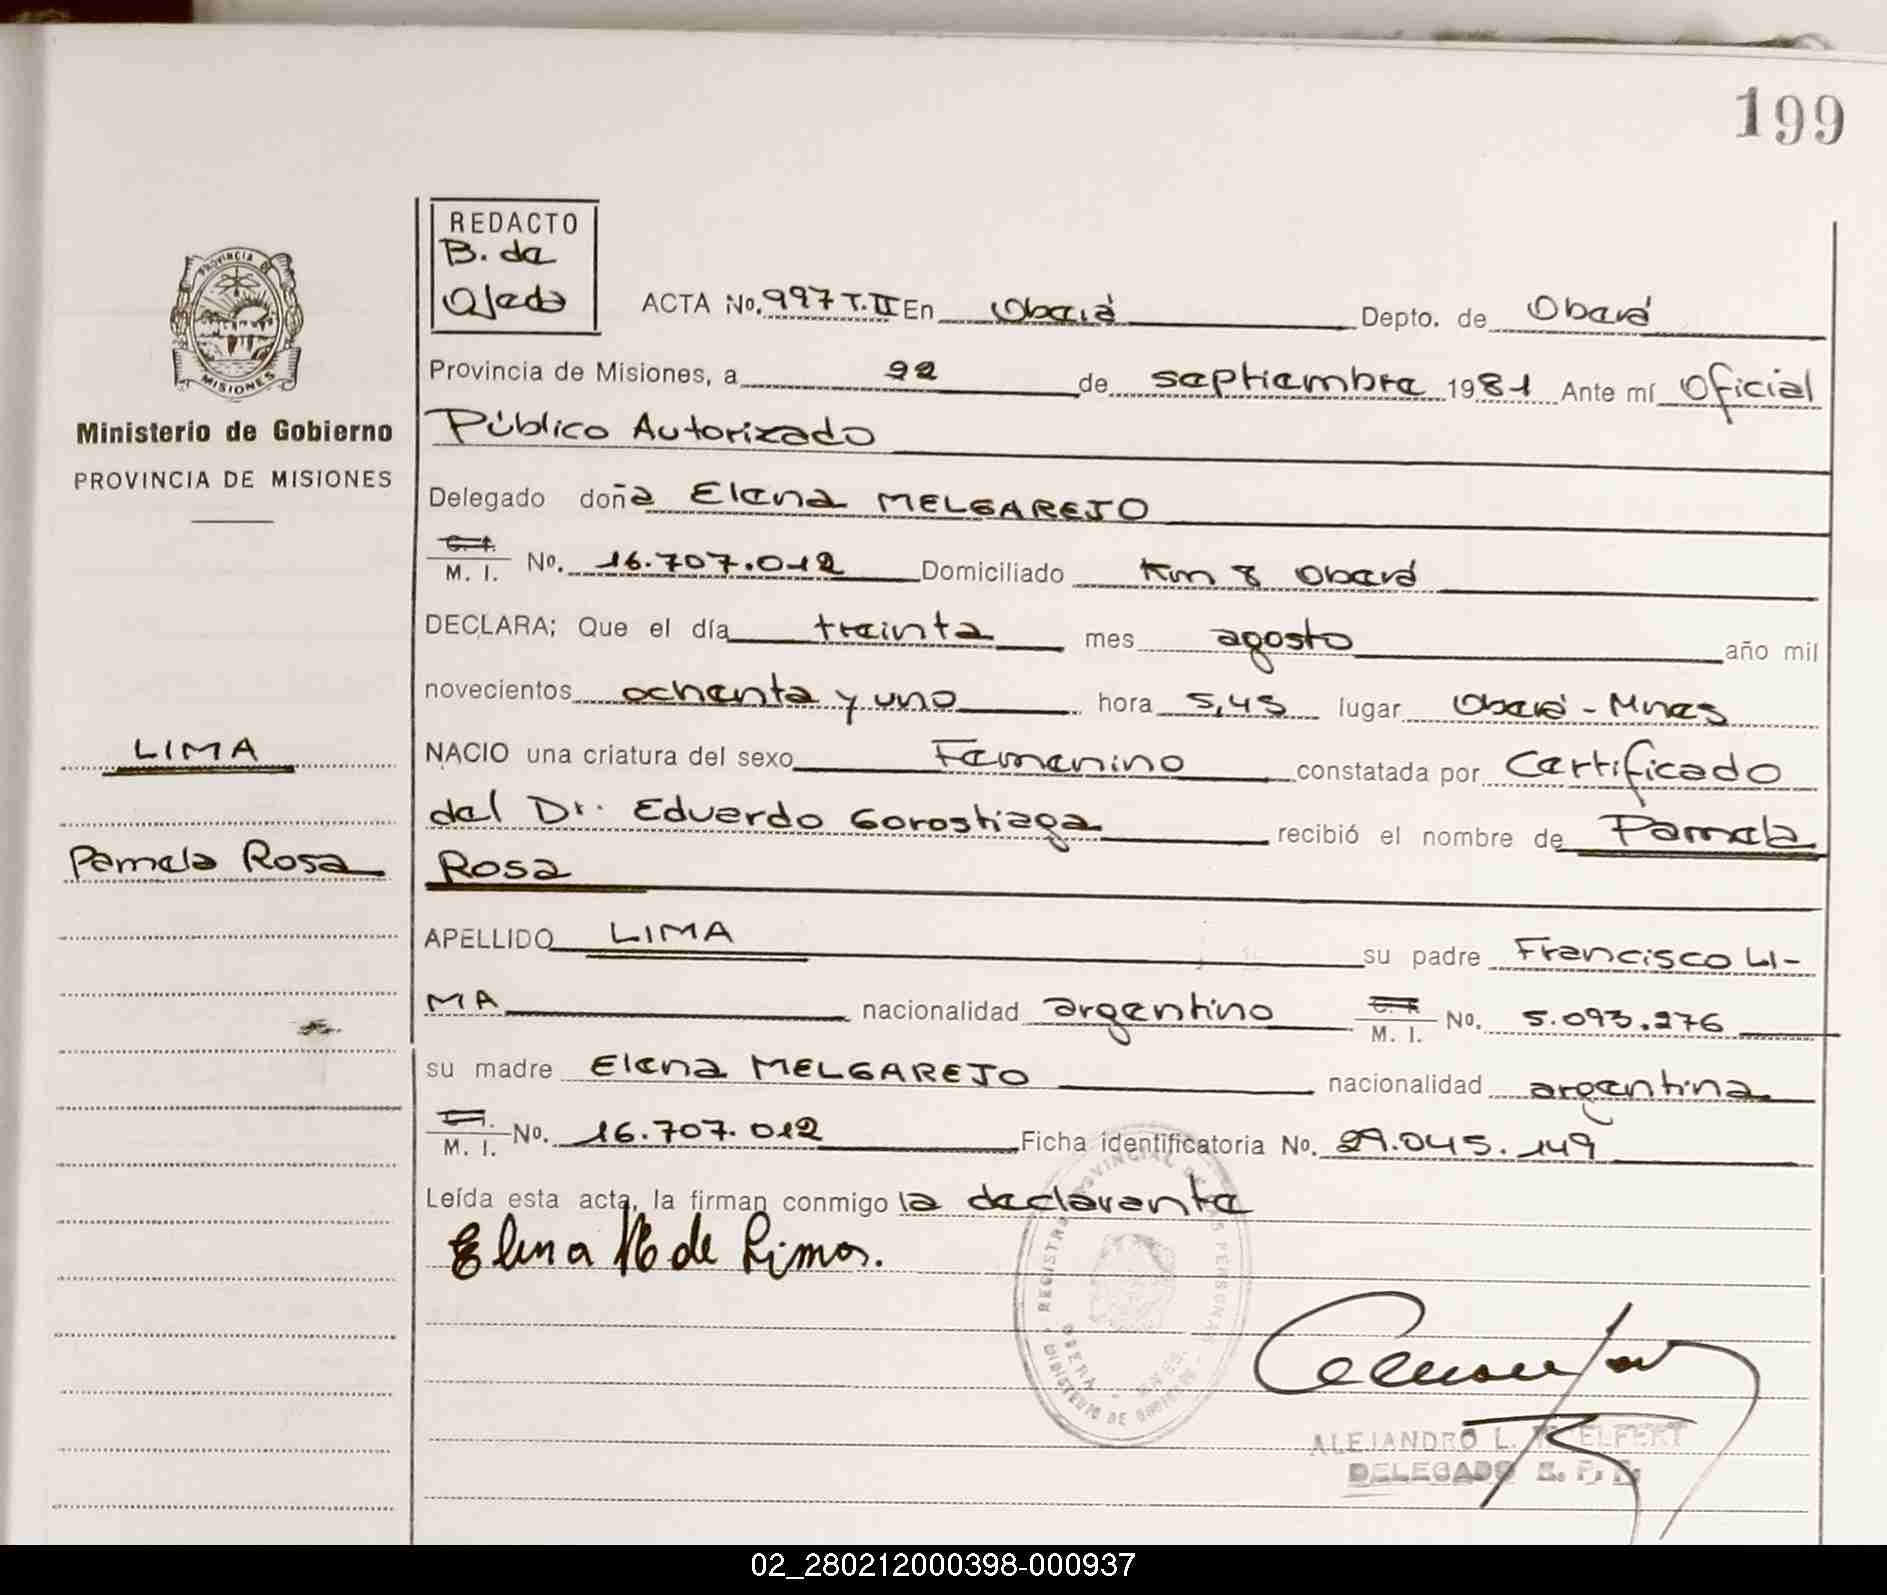 199
REDACTO
B. de
Ojeda
ACTA No. 997 T.II En Oberá Depto. de Oberá
Provincia de Misiones, a 22 de septiembre 1981 Ante mí Oficial
Ministerio de Gobierno
Público Autorizado
PROVINCIA DE MISIONES
Delegado doña Elena MELGAREJO
M. I. No. 16.707.012 Domiciliado Km 8 Oberá
DECLARA; Que el día treinta mes agosto año mil
novecientos ochenta y uno hora 5,45 lugar Oberá - Mnes
LIMA
NACIO una criatura del sexo Femenino constatada por Certificado
del Dr. Eduardo Gorostiaga recibió el nombre de Pamela
Pamela Rosa
Rosa
APELLIDO LIMA su padre Francisco LI-
MA nacionalidad argentino C. I. M. I. No. 5.093.276
su madre Elena MELGAREJO nacionalidad argentina
M. I. No. 16.707.012 Ficha identificatoria No. 29.045.149
Leída esta acta, la firman conmigo la declarante
Elena M de Lima.
ALEJANDRO L.
DELEGADO
02_280212000398-000937